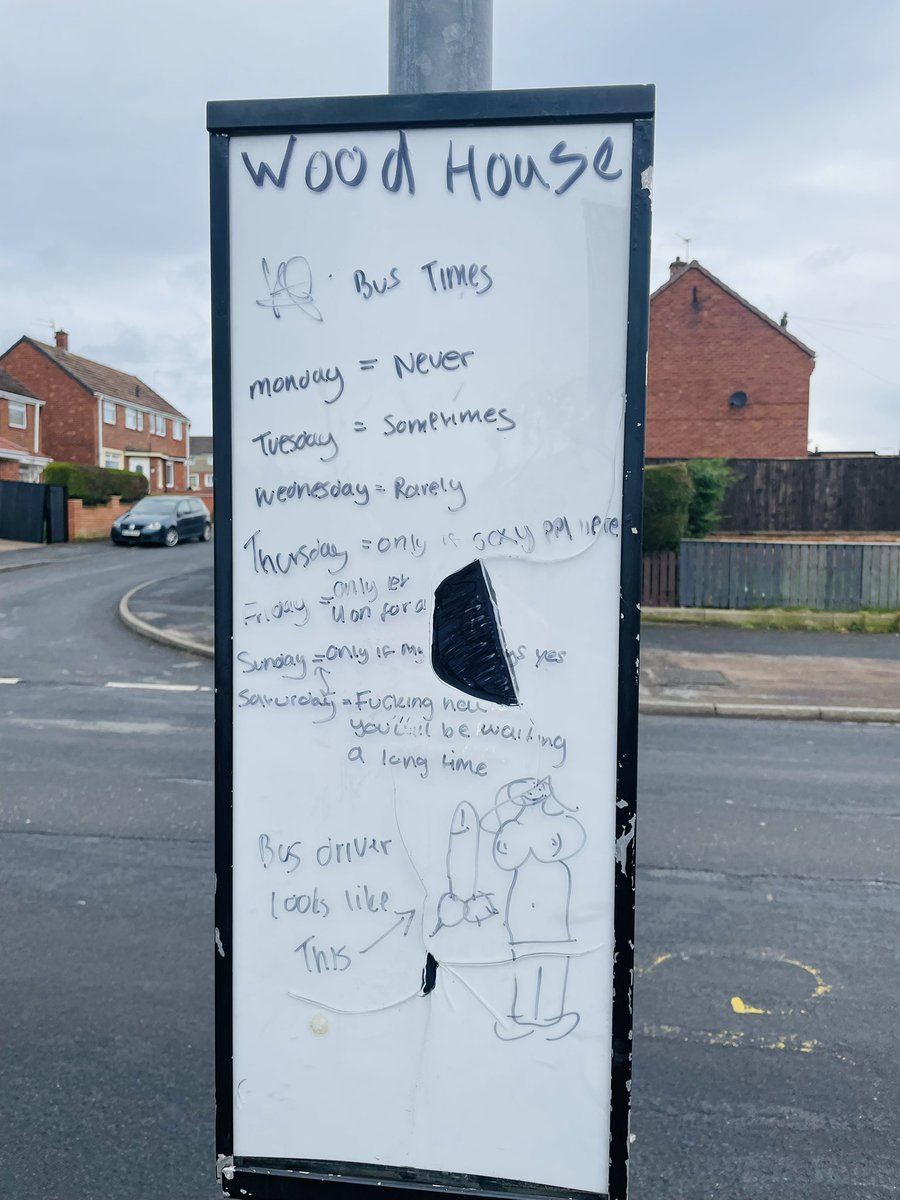 Wood House
Bus Times
monday = Never
Tuesday = Sometimes
Wednesday = Rarely
Thursday = only if sexy ppl here
Friday = only let
U on for a
Sunday = only if my yes
Saturday = Fucking
you'll be waiting
a long time
Bus driver
looks like
This